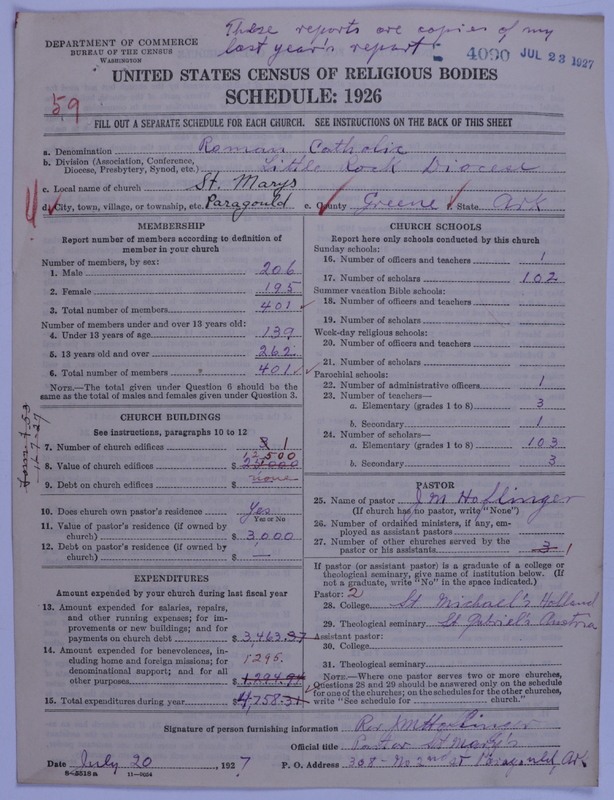 These reports are copies of my
last year's report.
4090 JUL 23 1927
DEPARTMENT OF COMMERCE
BUREAU OF THE CENSUS
WASHINGTON
UNITED STATES CENSUS OF RELIGIOUS BODIES
SCHEDULE: 1926
59
FILL OUT A SEPARATE SCHEDULE FOR EACH CHURCH. SEE INSTRUCTIONS ON THE BACK OF THIS SHEET
a. Denomination Roman Catholic
b. Division (Association, Conference,
Diocese, Presbytery, Synod, etc.) Little Rock Diocese
c. Local name of church St. Marys
d. City, town, village, or township, etc. Paragould e. County Greene f. State Ark
MEMBERSHIP
Report number of members according to definition of
member in your church
Number of members, by sex:
1. Male 206
2. Female 195
3. Total number of members 401
Number of members under and over 13 years old:
4. Under 13 years of age 139
5. 13 years old and over 262
6. Total number of members 401
NOTE.—The total given under Question 6 should be the
same as the total of males and females given under Question 3.
CHURCH BUILDINGS
See instructions, paragraphs 10 to 12
7. Number of church edifices 3 1
12,500
8. Value of church edifices $ 25000
9. Debt on church edifices $ none
10. Does church own pastor's residence Yes
Yes or No
11. Value of pastor's residence (if owned by
church) $ 3,000
12. Debt on pastor's residence (if owned by
church) $ —
EXPENDITURES
Amount expended by your church during last fiscal year
13. Amount expended for salaries, repairs,
and other running expenses; for im-
provements or new buildings; and for
payments on church debt $ 3,463.37
14. Amount expended for benevolences, in-
cluding home and foreign missions; for
denominational support; and for all
other purposes 1295.
$ 1,294.94
15. Total expenditures during year $ 4,758.31
CHURCH SCHOOLS
Report here only schools conducted by this church
Sunday schools:
16. Number of officers and teachers 1
17. Number of scholars 102
Summer vacation Bible schools:
18. Number of officers and teachers
19. Number of scholars
Week-day religious schools:
20. Number of officers and teachers
21. Number of scholars
Parochial schools:
22. Number of administrative officers 1
23. Number of teachers—
a. Elementary (grades 1 to 8) 3
b. Secondary 1
24. Number of scholars—
a. Elementary (grades 1 to 8) 103
b. Secondary 3
PASTOR
25. Name of pastor J M Hoflinger
(If church has no pastor, write "None")
26. Number of ordained ministers, if any, em-
ployed as assistant pastors
27. Number of other churches served by the
pastor or his assistants 3 1
If pastor (or assistant pastor) is a graduate of a college or
theological seminary, give name of institution below. (If
not a graduate, write "No" in the space indicated.)
Pastor: 2
28. College St Michael's Holland
29. Theological seminary St Gabriel's Austria
Assistant pastor:
30. College
31. Theological seminary
NOTE.—Where one pastor serves two or more churches,
Questions 28 and 29 should be answered only on the schedule
for one of the churches; on the schedules for the other churches,
write "See schedule for church."
Signature of person furnishing information Rev J M Hoflinger
Official title Pastor St Mary's
Date July 20, 1927 P. O. Address 308 - No 2nd St Paragould, Ark
8-2518 a 11—9024